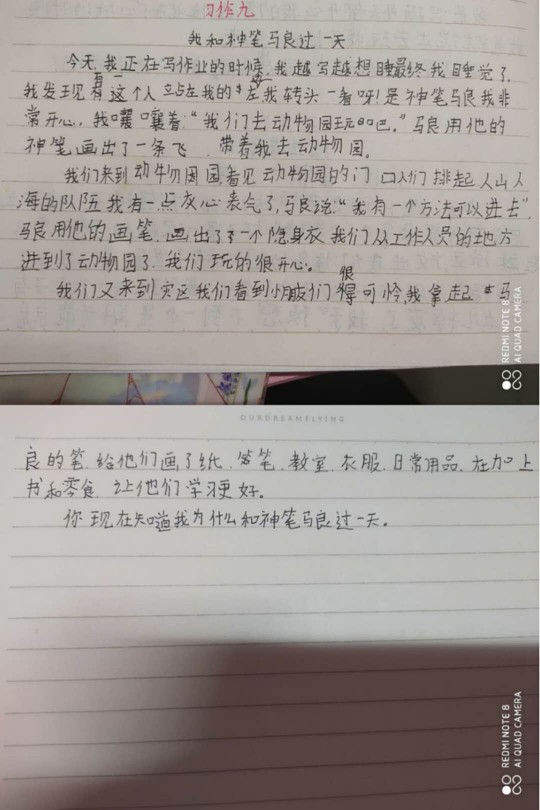 习作九
我和神笔马良过一天
今天,我正在写作业的时候,我越写越想睡最终我睡觉了,
我发现有一个人站在我的左我转头一看呀!是神笔马良我非
常开心,我嚷嚷着:“我们去动物园玩吧。”马良用他的
神笔画出了一条飞 带着我去动物园。
我们来到动物园看见动物园的门口人们排起人山人
海的队伍我有一点灰心丧气了,马良说:“我有一个方法可以进去”,
马良用他的画笔,画出了一个隐身衣我们从工作人员的地方
进到了动物园了,我们玩的很开心。
我们又来到灾区我们看到小朋友们很得可怜,我拿起马
OURDREAMFLYING
良的笔,给他们画了纸、笔、教室、衣服、日常用品,在加上
书和零食,让他们学习更好。
你现在知道我为什么和神笔马良过一天。
REDMI NOTE 8
AI QUAD CAMERA
REDMI NOTE 8
AI QUAD CAMERA